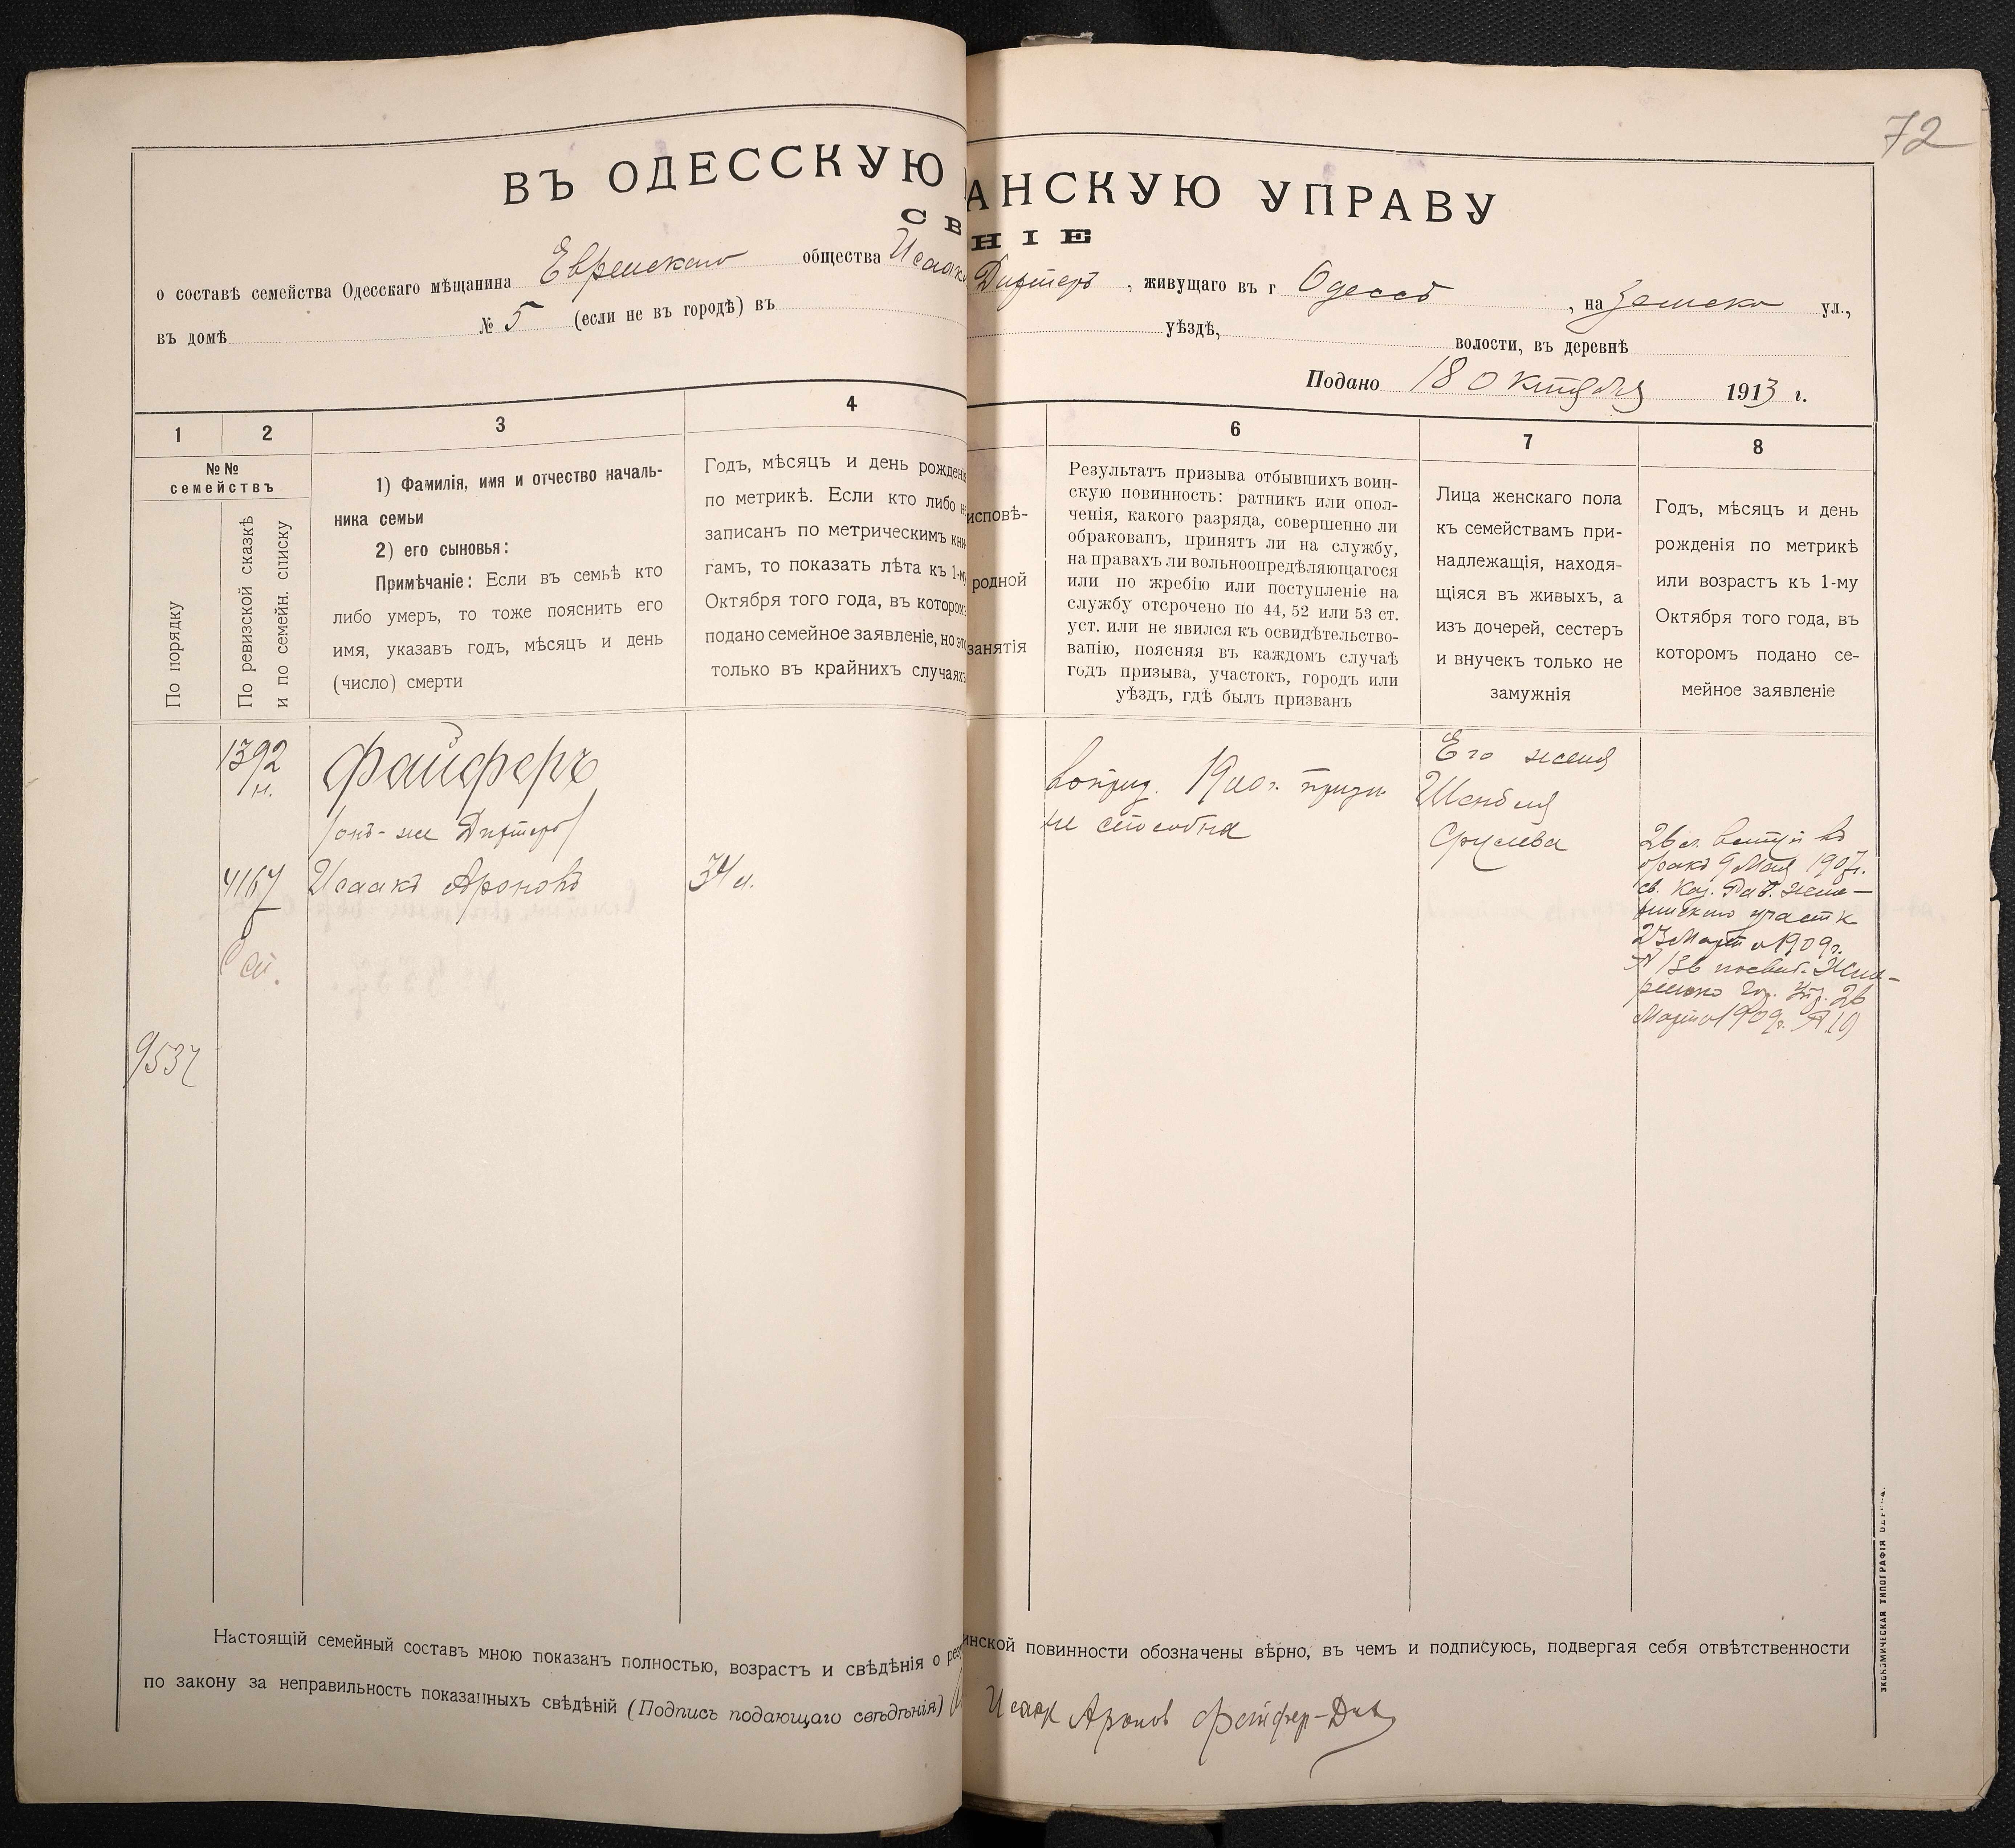 72
ВЪ ОДЕССКУЮ АНСКУЮ УПРАВУ
СВ НІЕ
о составѣ семейства Одесскаго мѣщанина Еврейскаго общества Исаака Дихтеръ, живущаго въ г Одессѣ, на Земско ул.,
въ домѣ № 5 (если не въ городѣ) въ уѣздѣ, волости, въ деревнѣ
Подано 18 Октября 1913 г.
1 2 3 4 6 7 8
№№
семействъ
По порядку
По ревизской сказкѣ
и по семейн. списку
1) Фамилія, имя и отчество началь-
ника семьи
2) его сыновья:
Примѣчаніе: Если въ семьѣ кто
либо умеръ, то тоже пояснить его
имя, указавъ годъ, мѣсяцъ и день
(число) смерти
Годъ, мѣсяцъ и день рожденія
по метрикѣ. Если кто либо не
записанъ по метрическимъ кни-
гамъ, то показать лѣта къ 1-му
Октября того года, въ которомъ
подано семейное заявленіе, но это
только въ крайнихъ случаяхъ
исповѣ-
родной
занятія
Результатъ призыва отбывшихъ воин-
скую повинность: ратникъ или опол-
ченія, какого разряда, совершенно ли
обракованъ, принятъ ли на службу,
на правахъ ли вольноопредѣляющагося
или по жребію или поступленіе на
службу отсрочено по 44, 52 или 53 ст.
уст. или не явился къ освидѣтельство-
ванію, поясняя въ каждомъ случаѣ
годъ призыва, участокъ, городъ или
уѣздъ, гдѣ былъ призванъ
Лица женскаго пола
къ семействамъ при-
надлежащія, находя-
щіяся въ живыхъ, а
изъ дочерей, сестеръ
и внучекъ только не
замужнія
Годъ, мѣсяцъ и день
рожденія по метрикѣ
или возрастъ къ 1-му
Октября того года, въ
которомъ подано се-
мейное заявленіе
1392
н.
Файферъ
/онъ-же Дихтеръ/
4167
Исаакъ Ароновъ
34 л.
9537
1900 г. призн
не способна
Его жена
Шендля
Срулева
26 л. вступ въ
бракъ 9 Мая 1907 г.
св. Каз. Рав.
участк
23 Марта 1909 г.
№ 136
26
Марта 1909 г. №
Настоящій семейный составъ мною показанъ полностью, возрастъ и свѣдѣнія о рез инской повинности обозначены вѣрно, въ чемъ и подписуюсь, подвергая себя отвѣтственности
по закону за неправильность показанныхъ свѣдѣній (Подпись подающаго свѣдѣнія) Исаак Аронов Фейфер-Дих
ЭКОНОМИЧЕСКАЯ ТИПОГРАФІЯ ОДЕССА.